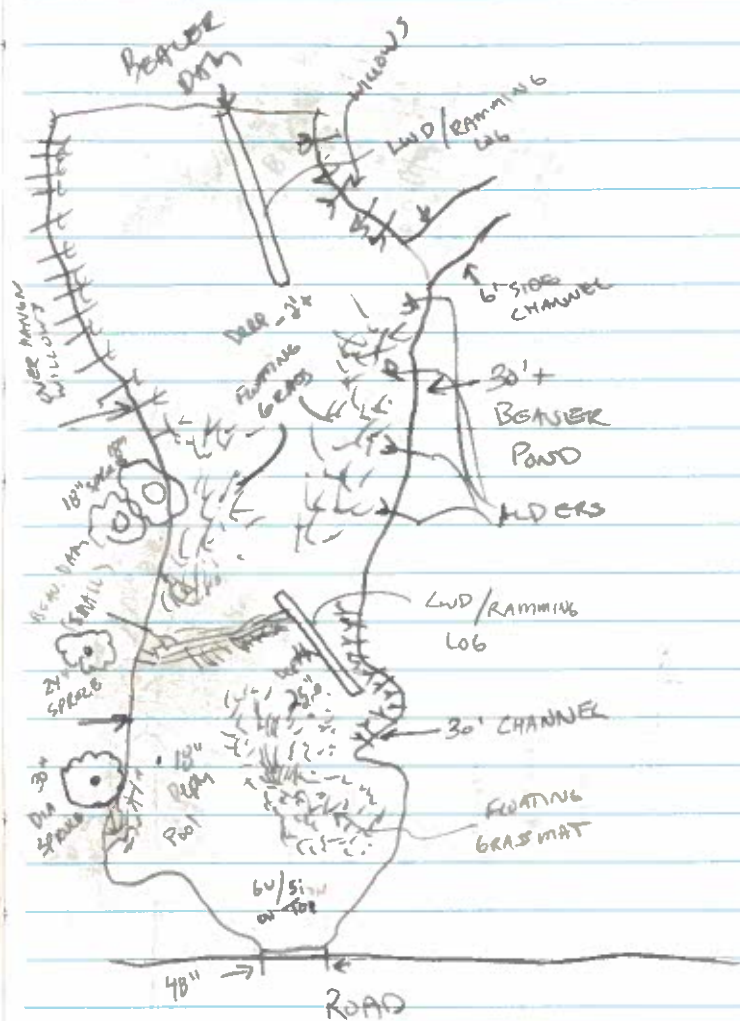 BEAVER
DAM
WILLOWS
LWD/RAMMING
LOG
6' SIDE
CHANNEL
OVER HANGN
WILLOWS
DEEP - 2'+
FLOATING
GRASS
30'+
BEAVER
POND
ALDERS
18" SPRUCE
BEAV. DAM
(SMALL)
LWD/RAMMING
LOG
24
SPRUCE
DEPTH
30' CHANNEL
30+
DIA
SPRUCE
18"
DEEP
POOL
FLOATING
GRASSMAT
ON TOP
48"
ROAD